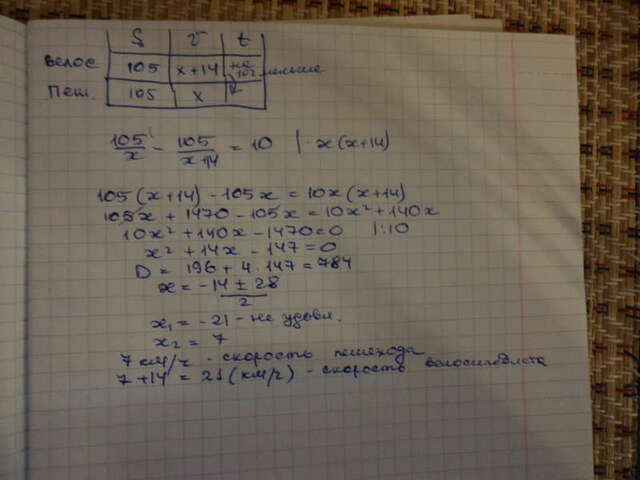 S v t
велос 105 x+14 на 10ч меньше
Пеш. 105 x
105/x - 105/(x+14) = 10 | · x(x+14)
105(x+14) - 105x = 10x(x+14)
105x + 1470 - 105x = 10x² + 140x
10x² + 140x - 1470 = 0 |:10
x² + 14x - 147 = 0
D = 196 + 4 · 147 = 784
x = (-14 ± 28)/2
x₁ = -21 - не удовл.
x₂ = 7
7 км/ч - скорость пешехода
7 + 14 = 21 (км/ч) - скорость велосипедиста